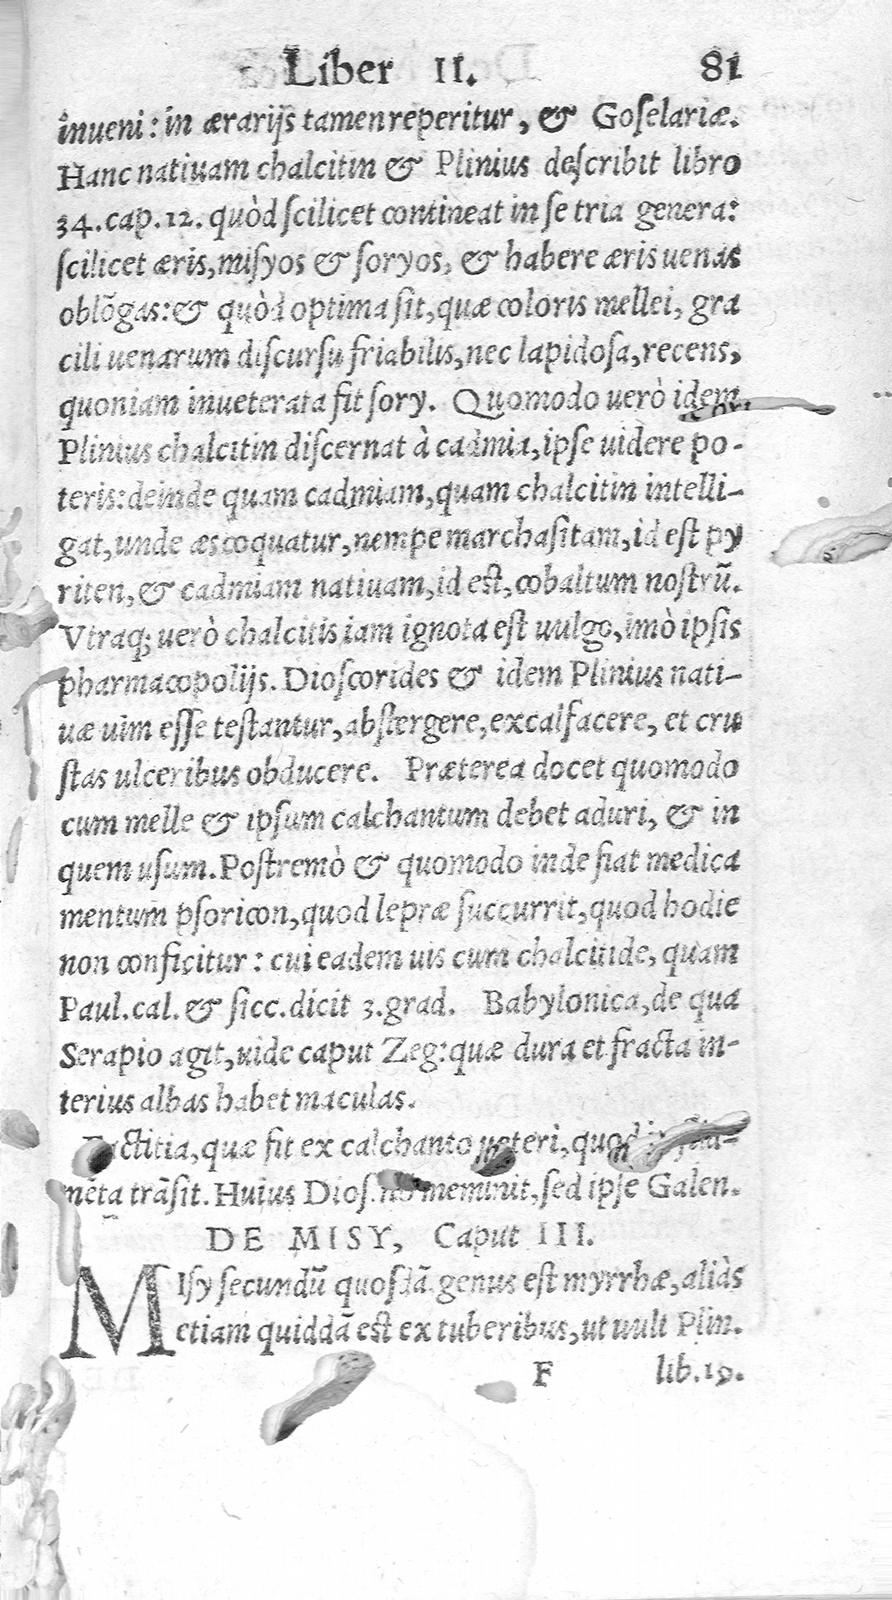 Liber II. 81
inueni: in ærarijs tamen reperitur, & Goselariæ.
Hanc natiuam chalcitin & Plinius describit libro
34. cap. 12. quòd scilicet contineat in se tria genera:
scilicet æris, misyos & soryos, & habere æris uenas
oblõgas: & quòd optima sit, quæ coloris mellei, gra
cili uenarum discursu friabilis, nec lapidosa, recens,
quoniam inueterata fit sory. Quomodo uerò idem
Plinius chalcitin discernat à cadmia, ipse uidere po-
teris: deinde quam cadmiam, quam chalcitin intelli-
gat, unde æs coquatur, nempe marchasitam, id est py
riten, & cadmiam natiuam, id est, cobaltum nostrũ.
Vtraq; uerò chalcitis iam ignota est uulgo, imò ipsis
pharmacopolijs. Dioscorides & idem Plinius nati-
uæ uim esse testantur, abstergere, excalfacere, et cru
stas ulceribus obducere. Præterea docet quomodo
cum melle & ipsum calchantum debet aduri, & in
quem usum. Postremò & quomodo inde fiat medica
mentum psoricon, quod lepræ succurrit, quod hodie
non conficitur: cui eadem uis cum chalcitide, quam
Paul. cal. & sicc. dicit 3. grad. Babylonica, de qua
Serapio agit, uide caput Zeg: quæ dura et fracta in-
terius albas habet maculas.
Factitia, quæ fit ex calchanto ueteri, quod
mẽta trãsit. Huius Dios. nõ meminit, sed ipse Galen.
DE MISY, Caput III.
MIsy secundũ quosdã genus est myrrhæ, aliàs
etiam quiddã est ex tuberibus, ut uult Plin.
F lib. 19.